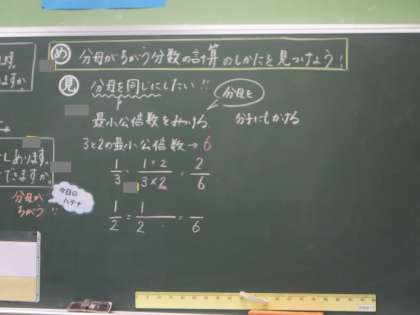 め 分母がちがう分数の計算のしかたを見つけよう!
見 分母を同じにしたい!!
分母を
最小公倍数をみつける
分子にもかける
3と2の最小公倍数→6
1/3 = 1×2/3×2 = 2/6
1/2 = 1/2 = /6
しあります。
できますか
分母が
ちがう!!
今日の
ハテナ
ます。
ますか